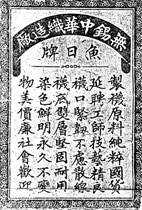 無錫中華織造廠
魚日牌
製襪原料純粹國貨
延聘工師技藝精良
襪口緊韌不慮散線
襪底雙層堅固耐用
染色鮮明永久不變
物美價廉社會歡迎